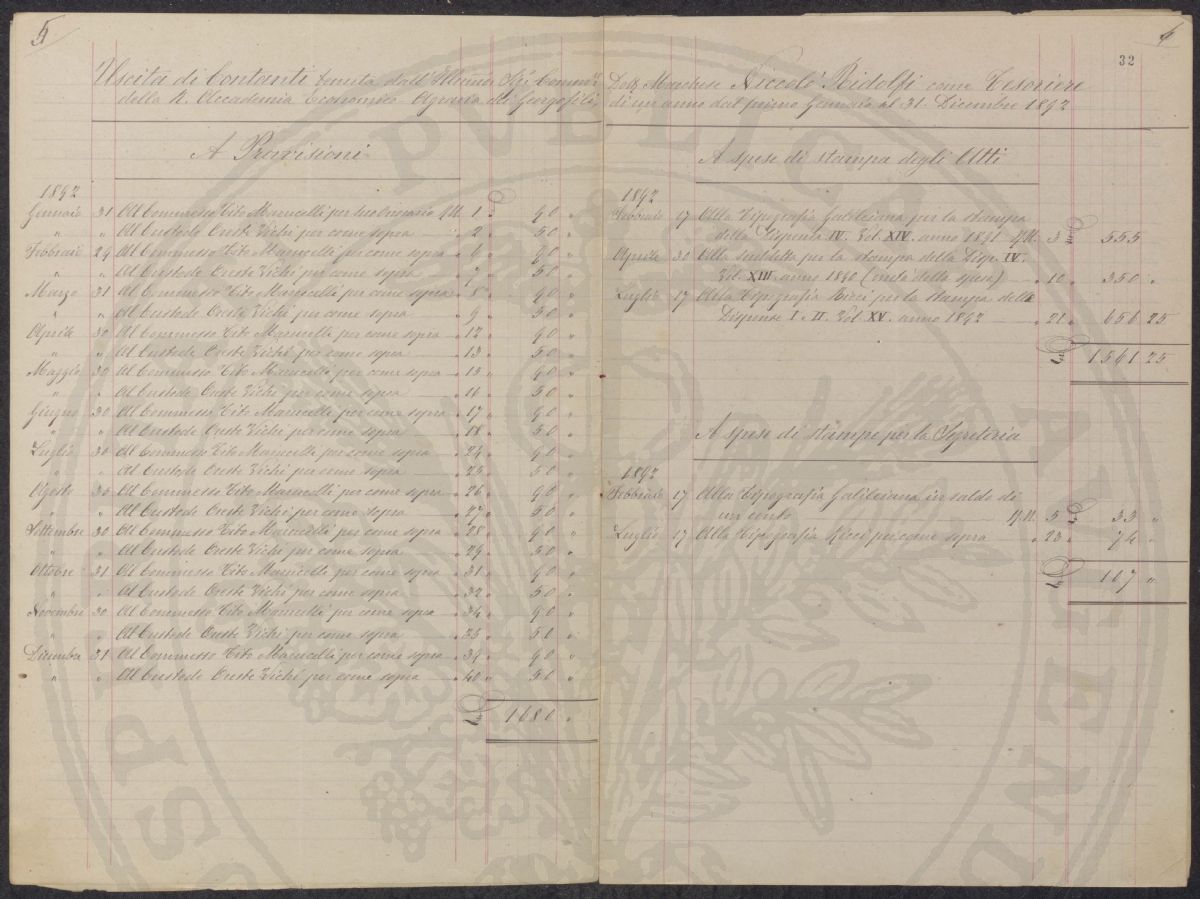 5
Uscita di Contanti tenuta dall'Illmo Sig. Comm.
della R. Accademia Economico Agraria dei Georgofili,
A Provisioni
1892
Gennaio 31 Al Commesso Tito Marucelli per suo onorario N. 1 £ 90 "
" " Al Custode Oreste Zichi per come sopra " 2 " 50 "
Febbraio 29 Al Commesso Tito Marucelli per come sopra " 6 " 90 "
" " Al Custode Oreste Zichi per come sopra " 7 " 50 "
Marzo 31 Al Commesso Tito Marucelli per come sopra " 8 " 90 "
" " Al Custode Oreste Zichi per come sopra " 9 " 50 "
Aprile 30 Al Commesso Tito Marucelli per come sopra " 12 " 90 "
" " Al Custode Oreste Zichi per come sopra " 13 " 50 "
Maggio 30 Al Commesso Tito Marucelli per come sopra " 15 " 90 "
" " Al Custode Oreste Zichi per come sopra " 16 " 50 "
Giugno 30 Al Commesso Tito Marucelli per come sopra " 17 " 90 "
" " Al Custode Oreste Zichi per come sopra " 18 " 50 "
Luglio 30 Al Commesso Tito Marucelli per come sopra " 24 " 90 "
" " Al Custode Oreste Zichi per come sopra " 25 " 50 "
Agosto 30 Al Commesso Tito Marucelli per come sopra " 26 " 90 "
" " Al Custode Oreste Zichi per come sopra " 27 " 50 "
Settembre 30 Al Commesso Tito Marucelli per come sopra " 28 " 90 "
" " Al Custode Oreste Zichi per come sopra " 29 " 50 "
Ottobre 31 Al Commesso Tito Marucelli per come sopra " 31 " 90 "
" " Al Custode Oreste Zichi per come sopra " 32 " 50 "
Novembre 30 Al Commesso Tito Marucelli per come sopra " 34 " 90 "
" " Al Custode Oreste Zichi per come sopra " 35 " 50 "
Dicembre 31 Al Commesso Tito Marucelli per come sopra " 39 " 90 "
" " Al Custode Oreste Zichi per come sopra " 40 " 50 "
£ 1680 "
32
Dott. Marchese Niccolò Ridolfi come Tesoriere
di un anno dal primo Gennaio al 31. Dicembre 1892
A spese di stampa degli Atti
1892
Febbraio 17 Alla Tipografia Galileiana per la stampa
della Dispensa IV. Vol. XIV. anno 1891. N. 3 £ 555 "
Aprile 30 Alla suddetta per la stampa della Disp. IV.
Vol. XIII. anno 1890 (metà della spesa) " 10 " 350 "
Luglio 17 Alla Tipografia Ricci per la stampa delle
Dispense I. e II. Vol. XV. anno 1892 " 21 " 656 25
£ 1561 25
A spese di stampe per la Segreteria
1892
Febbraio 17 Alla Tipografia Galileiana in saldo di
un conto N. 5 £ 33 "
Luglio 17 Alla Tipografia Ricci per come sopra " 23 " 74 "
£ 107 "
PVBLICA